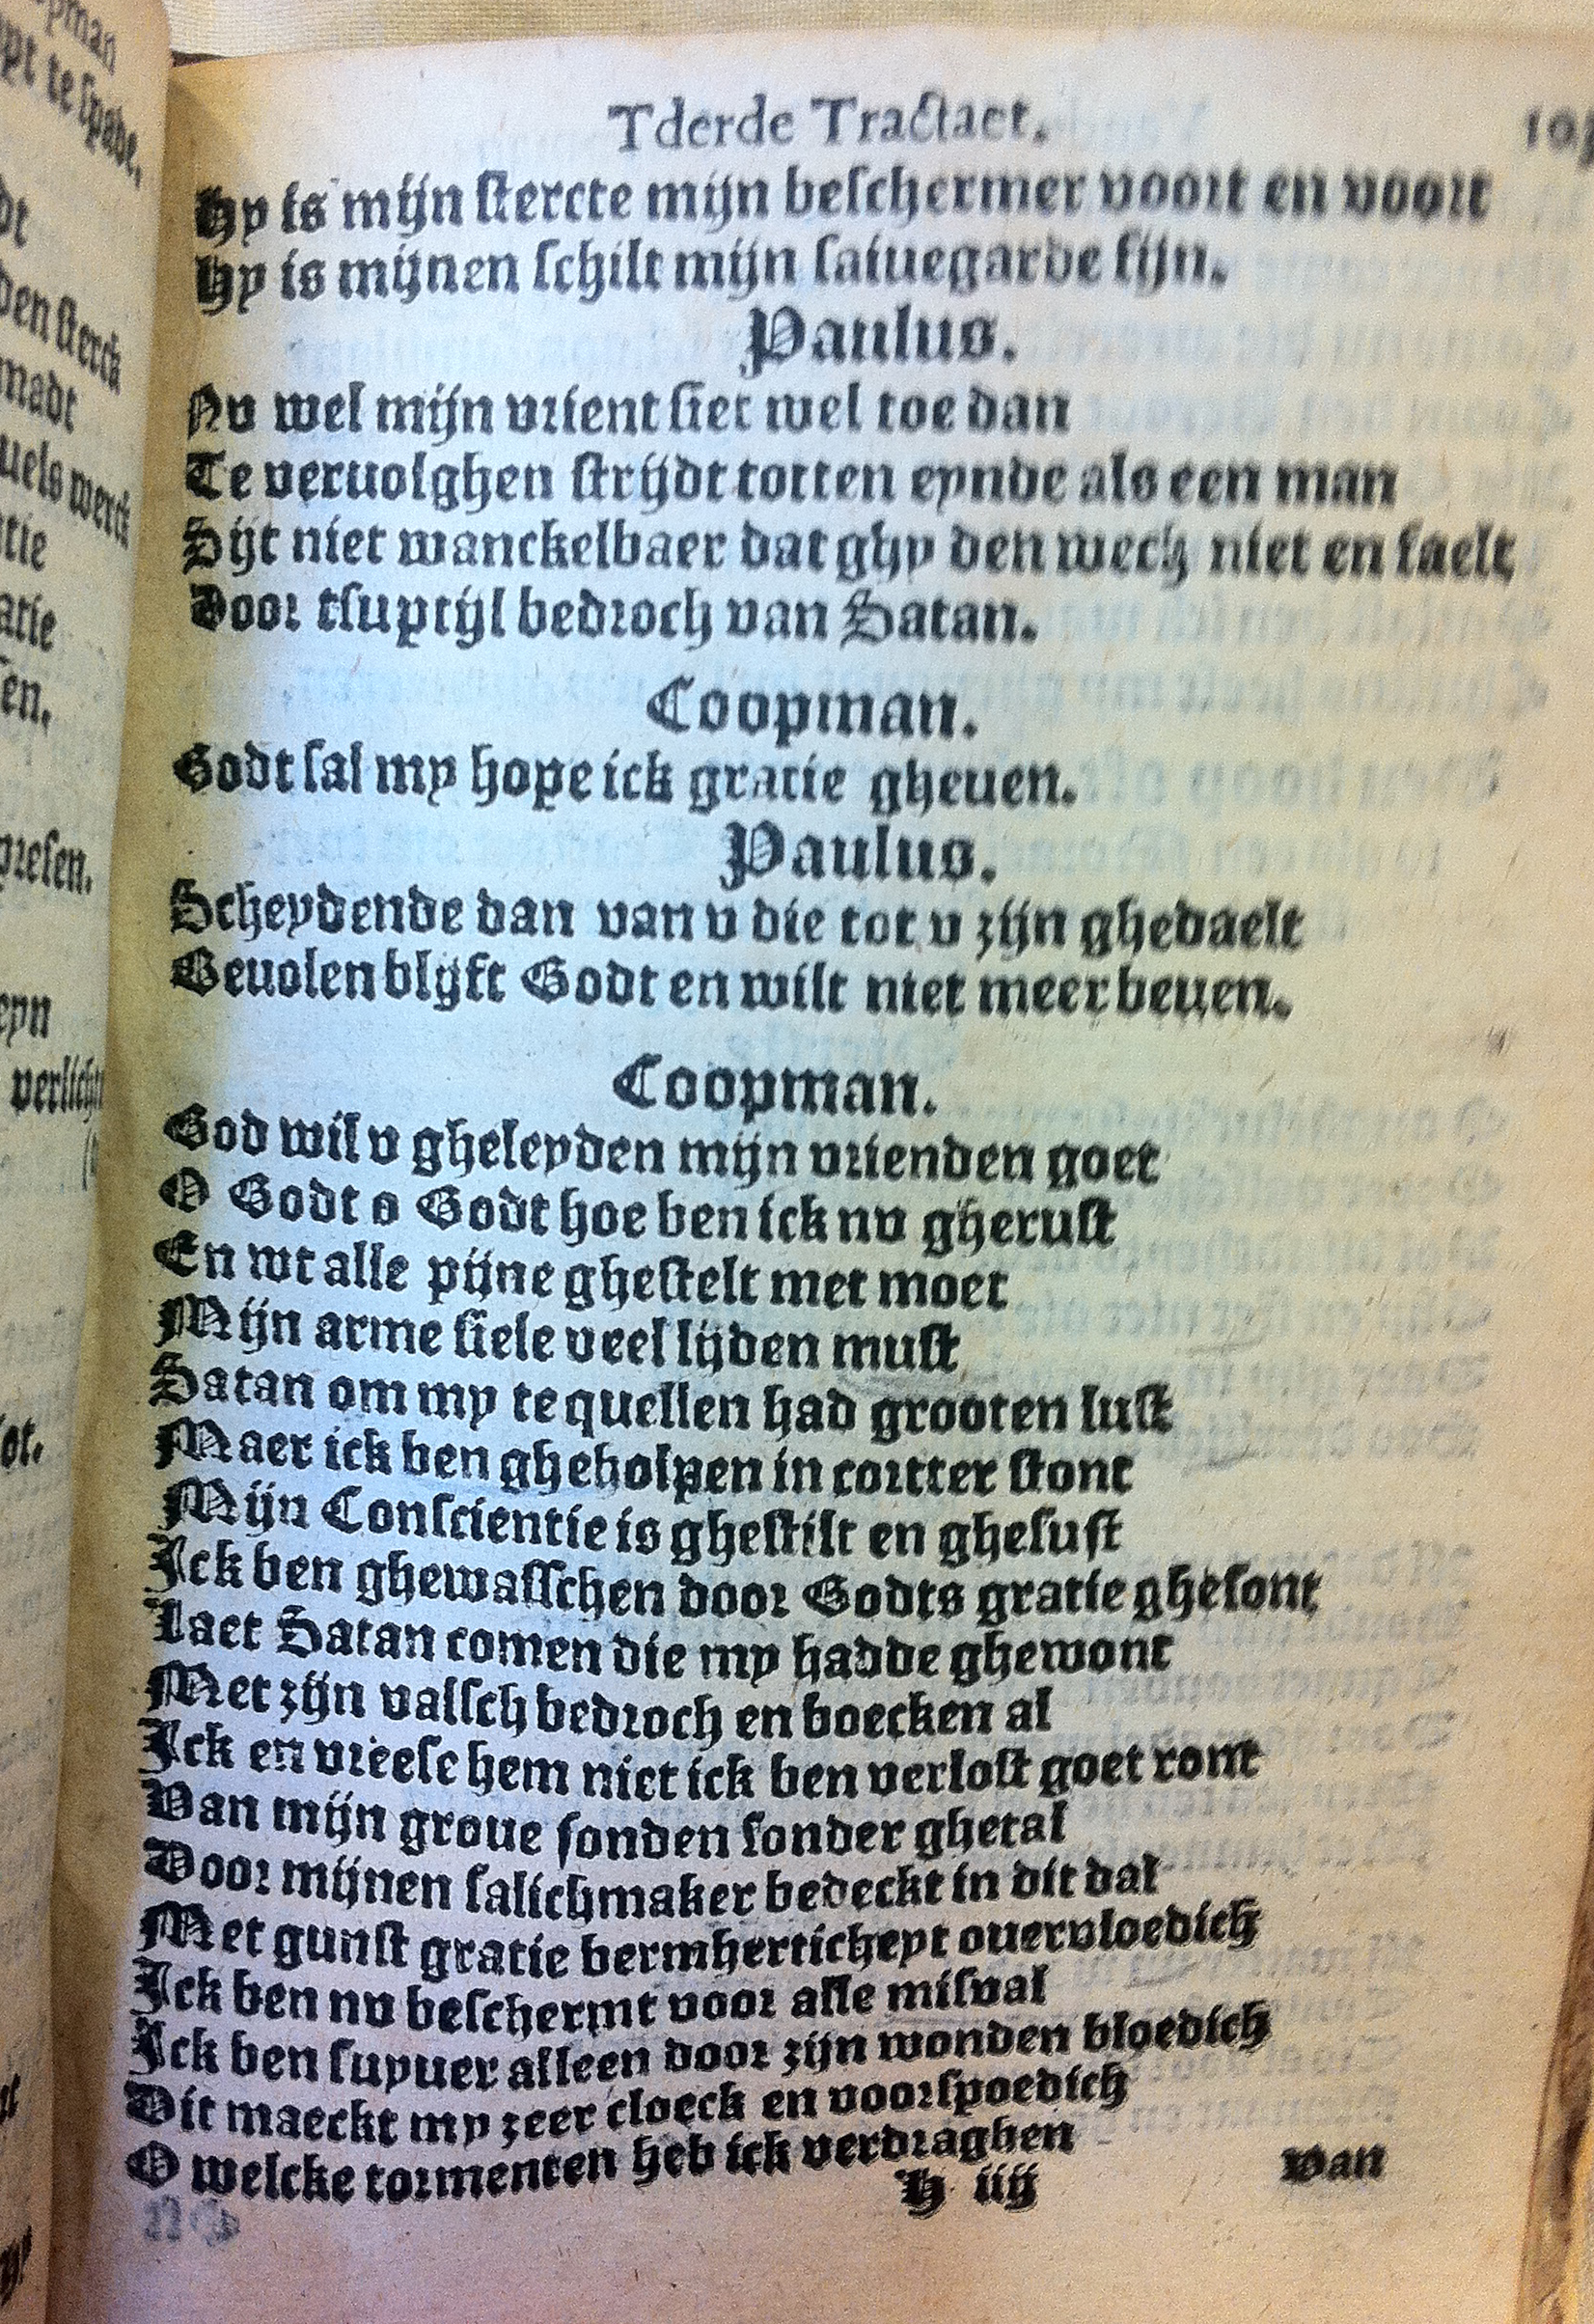 Tderde Tractaet.
Hy is mijn stercte mijn beschermer voort en voort
Hy is mijnen schilt mijn saluegarde fijn.
Paulus.
Nv wel mijn vrient siet wel toe dan
Te veruolghen strijdt totten eynde als een man
Sijt niet wanckelbaer dat ghy den wech niet en faelt
Door tsuptijl bedroch van Satan.
Coopman.
Godt sal my hope ick gratie gheuen.
Paulus.
Scheydende dan van v die tot v zijn ghedaelt
Beuolen blijft Godt en wilt niet meer beuen.
Coopman.
God wil v gheleyden mijn vrienden goet
O Godt o Godt hoe ben ick nv gherust
En wt alle pijne ghestelt met moet
Mijn arme siele veel lijden must
Satan om my te quellen had grooten lust
Maer ick ben gheholpen in cortter stont
Mijn Conscientie is ghestilt en ghesust
Ick ben ghewasschen door Godts gratie ghesont
Laet Satan comen die my hadde ghewont
Met zijn valsch bedroch en boecken al
Ick en vreese hem niet ick ben verlost goet ront
Van mijn groue sonden sonder ghetal
Door mijnen salichmaker bedeckt in dit dal
Met gunst gratie bermherticheyt oueruloedich
Ick ben nv beschermt voor alle misual
Ick ben suyuer alleen door zijn wonden bloedich
Dit maeckt my zeer cloeck en voorspoedich
O welcke tormenten heb ick verdraghen
H iij
van